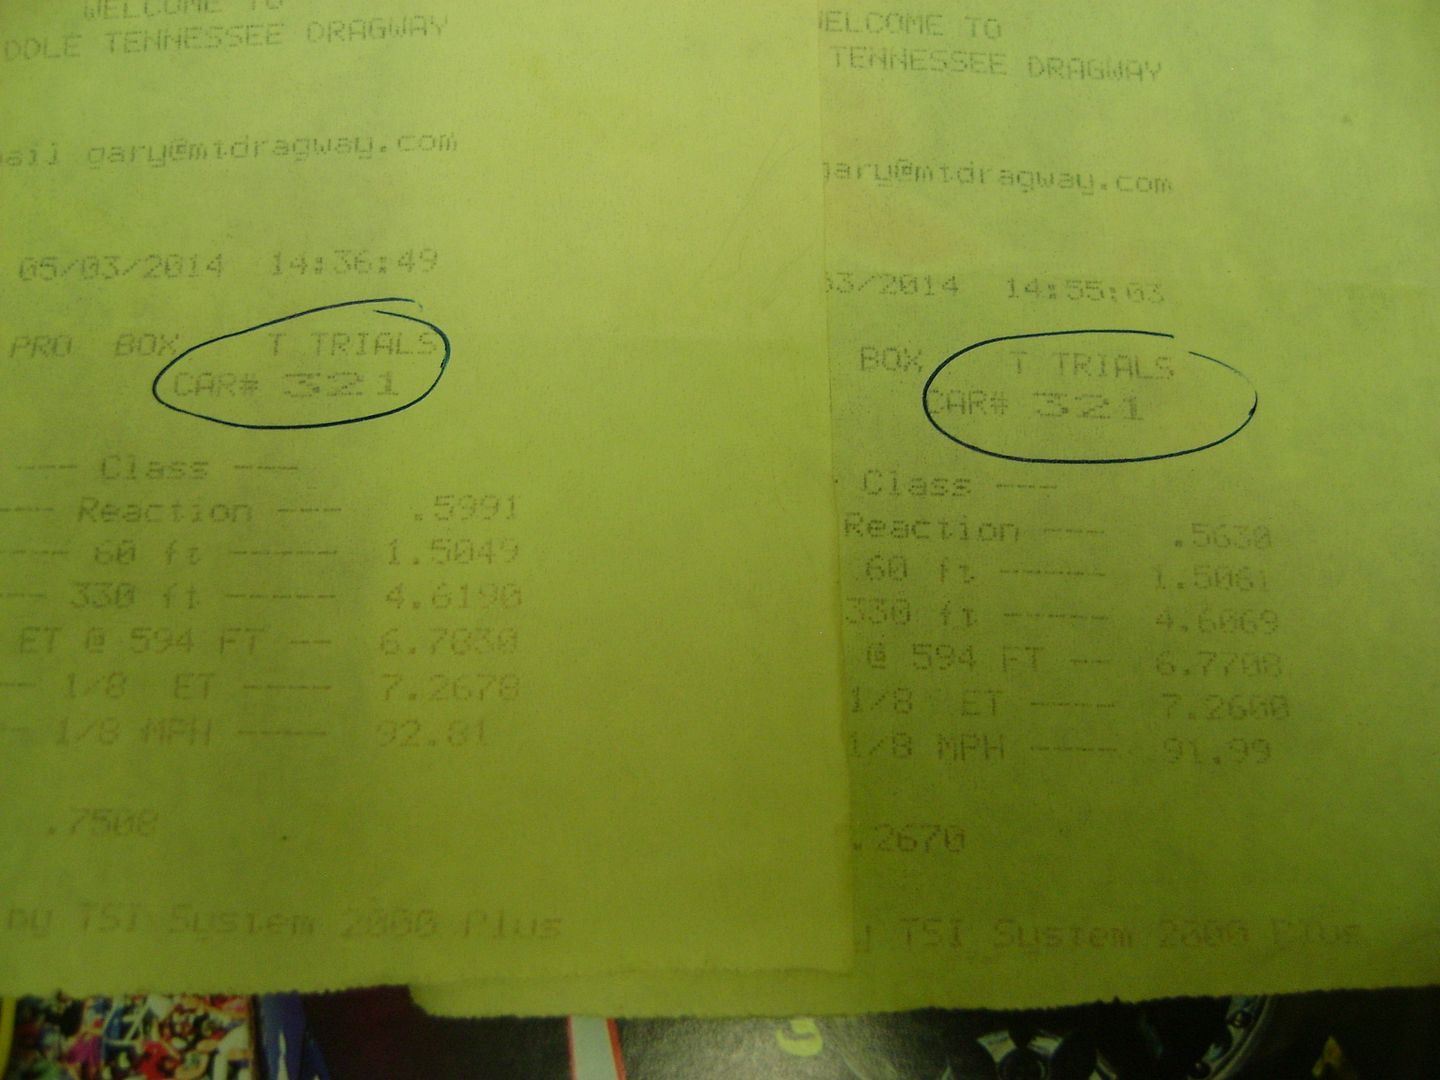 WELCOME TO
DDLE TENNESSEE DRAGWAY
ail gary@mtdragway.com
05/03/2014 14:36:49
PRO BOX T TRIALS
CAR# 321
--- Class ---
--- Reaction --- .5991
---- 60 ft ----- 1.5049
--- 330 ft ----- 4.6190
ET @ 594 FT -- 6.7830
-- 1/8 ET ---- 7.2678
- 1/8 MPH ---- 92.81
.7508
by TSI System 2000 Plus
ELCOME TO
TENNESSEE DRAGWAY
gary@mtdragway.com
03/2014 14:55:03
BOX T TRIALS
CAR# 321
Class ---
Reaction --- .5630
60 ft ----- 1.5061
330 ft ----- 4.6069
@ 594 FT -- 6.7708
1/8 ET ---- 7.2600
1/8 MPH ---- 91.99
.2670
TSI System 2000 Plus